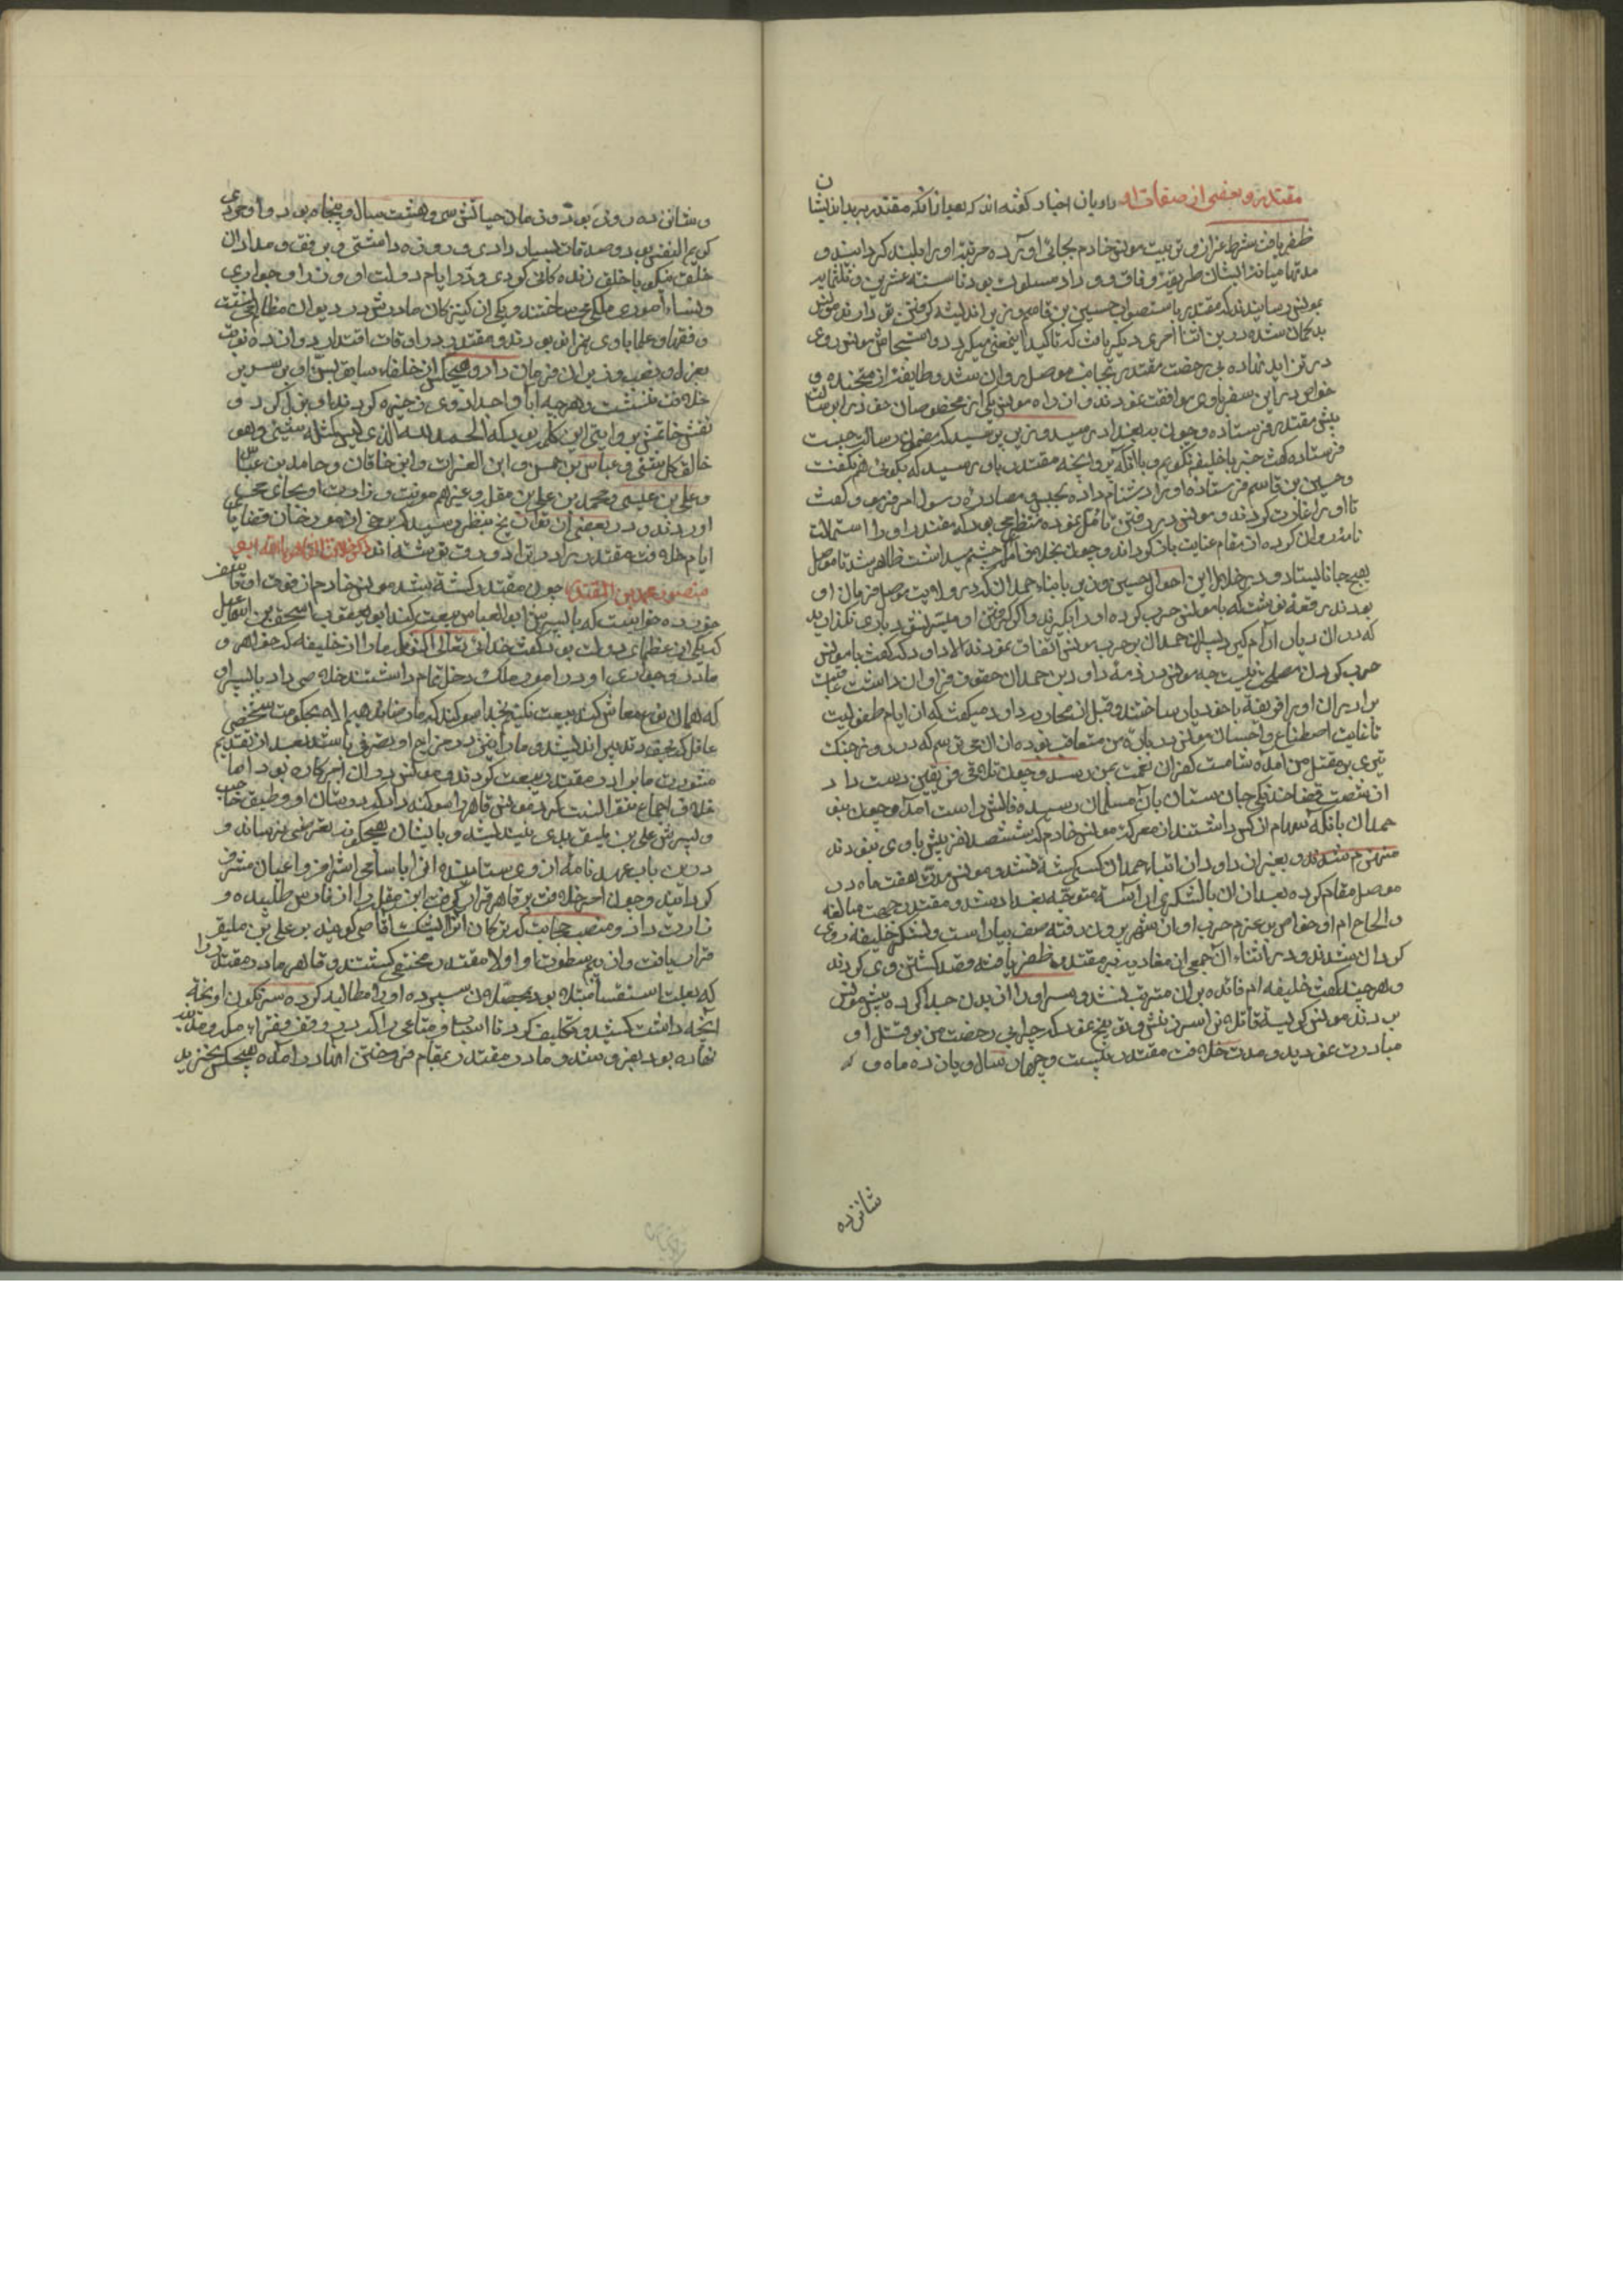 مقتدر و بعضی از صفات او راویان اخبار گفته اند که بعد از آنکه مقتدر بر بداندیشان
ظفر یافت شرط اعزاز و تربیت مونس خادم بجای آورده مرتبه او را بلند گردانید و
مدتها میانه ایشان طریقه وفاق و وداد مسلوک بود تا سنه عشرین و ثلثمایه
بمونس رسانیدند که مقتدر باستصواب حسین بن قاسم وزیر اندیشه گرفتن تو دارند مونس
بدگمان شده درین اثنا امری دیگر یافت که تاکید اینمعنی میکرد و استیحاش مونس روی
در تزاید نهاده بی رخصت مقتدر بجانب موصل روان شد و طایفه از
خواص درین سفر با وی موافقت نمودند و از راه مونس یکی از مخصوصان خود را برسالت
پیش مقتدر فرستاده و چون ببغداد رسید وزیر پرسید که مضمون رسالت چیست
فرستاده گفت جز با خلیفه نگویم و با آنکه پروانچه مقتدر باو رسید که بگو هم نگفت
و حسین بن قاسم فرستاده او را دشنام داده بحبس و مصادره رسول امر فرمود و گفت
تا او را غارت کردند و مونس در رفتن تامل نموده منتظر می بود که مقتدر او را استمالت
نامه روان کرده از مقام عنایت بازگرداند و چون بخلاف آنکه چشم میداشت ظاهر شد تا موصل
بهیچ جا نایستاد و در خلال این احوال حسین وزیر بابناء حمدان که در ولایت موصل فرمان او
بودند رقعه نوشت که با مونس حرب کرده او را بگیرند و اگر گرفتن او میسر نشود باری نگذارند
که در آن دیار آرام گیرد پسران حمدان بر حرب مونس اتفاق نمودند الا داود که گفت با مونس
حرب کردن مصلحت نیست چه مونس در ذمه داود بن حمدان حقوق فراوان داشت عاقبت
برادران او را فریفته با خود یار ساختند و قبل از محاربه داود میگفت که از ایام طفولیت
تا غایت اصطناع و احسان مونس در باره من متعاقب بوده از آن می ترسم که در روز جنگ
تیری بر مقتل من آمده شامت کفران نعمت بمن رسد و چون تلاقی فریقین دست داد
از شصت قضا خدنگی جان ستان بآن مسلمان رسیده فالش راست آمد و چون بنو
حمدان با آنکه سی هزار کس داشتند از معرکه مونس خادم که ششصد نفر بیش با وی نبودند
منهزم شدند و بغیر از داود از اتباع حمدان کسی کشته نشد و مونس مدت هفت ماه در
موصل مقام کرده بعد از آن با لشکری آراسته متوجه بغداد شد و مقتدر بجهت مبالغه
و الحاح امرا و خواص بر عزم حرب او از شهر بیرون رفته صف بیاراست و لشکر خلیفه روی
گردان شدند و در اثناء آن جمعی از مغاربه بر مقتدر ظفر یافته و قصد کشتن وی کردند
و هر چند گفت خلیفه ام فایده بر آن مترتب نشد و سر او را از بدن جدا کرده پیش مونس
بردند مونس گریسته قاتلان را سرزنش و توبیخ نمود که چرا بی رخصت من بر قتل او
مبادرت نمودید و مدت خلافت مقتدر بیست و چهار سال و یازده ماه و
شانزده
و شانزده روز بود و زمان حیاتش سی و هشت سال و پنجاه روز و او مردی
کریم النفس بود و صدقات بسیار دادی و روزه داشتی و برفق و مدارا آن
خلقت نیکو با خلق زندگانی کردی و در ایام دولت او وزرا و جواری
و نساء امور ملکی می ساختند و یکی از کنیزکان مادرش در دیوان مظالم می نشست
و فقها و علما با وی همراه می بودند و مقتدر در اوقات اقتدار دوازده نوبت
بعزل و نصب وزیران فرمان داد و هیچکس از خلفاء سابق بسن او بر سریر
خلافت ننشست و هر چه آبا و اجداد وی ذخیره کردند او بذل کرد و
نقش خاتمش بروایتی این کلمه بود که الحمد لله الذی لیس کمثله شیئ و هو
خالق کل شیئ و عباس بن حسن و ابن الفرات و ابن خاقان و حامد بن عباس
و علی بن عیسی و محمد بن علی بن مقله و غیرهم بوزارت او بجای می
آوردند و در بعضی از تواریخ بنظر رسید که برخی از مورخان قضایای
ایام خلافت مقتدر برادر زاده نوشته اند ذکر خلافت القاهر بالله ابو
منصور محمد بن المقتدر چون مقتدر کشته شد مونس خادم از فوت او تاسف
خورده خواست که با پسر او ابوالعباس بیعت کند ابو یعقوب اسحق بن اسمعیل
که یکی از عظمای دولت بود گفت خدای تعالی اکنون ما را از خلیفه که خواهر و
مادر و جواری او در امور ملک دخل تمام داشتند خلاصی داد با پسر او
که همان نوع معاش کند بیعت نکنیم بخدا سوگند که ما رضا ندهیم الا بحکومت شخصی
عاقل که بخود تدبیر اندیشد و ما را نیز در مزاج او تصرفی باشد بعد از تقدیم
مشورت با برادر مقتدر بیعت کردند و مونس در آن امر کاره بود اما
خلاف اجماع نتوانست کرد مونس قاهر را سوگند داد که در شان او و بلیق حاجب
و پسرش علی بن بلیق بدی نیندیشد و بایشان بهیچگونه تعرضی نرساند و
درین باب عهدنامه از وی ستانیده آنرا باسامی اشراف و اعیان مشرف
گردانید و چون امر خلافت بر قاهر قرار گرفت ابن مقله را از فارس طلبیده و
زارت داد و منصب حجابت
قرار یافت و از بیم سطوت او اولاد مقتدر مختفی گشتند و قاهر مادر مقتدر را
که بعلت استسقا مبتلا بود بمحصلان سپرده او را مطالبه کرده سرنگون آویخته
آنچه داشت کشید و تکلیف کرد تا اسباب و متاعی را که بر وقف فقراء مکه و مدینه
نهاده بود بفروشد و مادر مقتدر بمقام فروختن آنها درآمده هیچکس نخرید